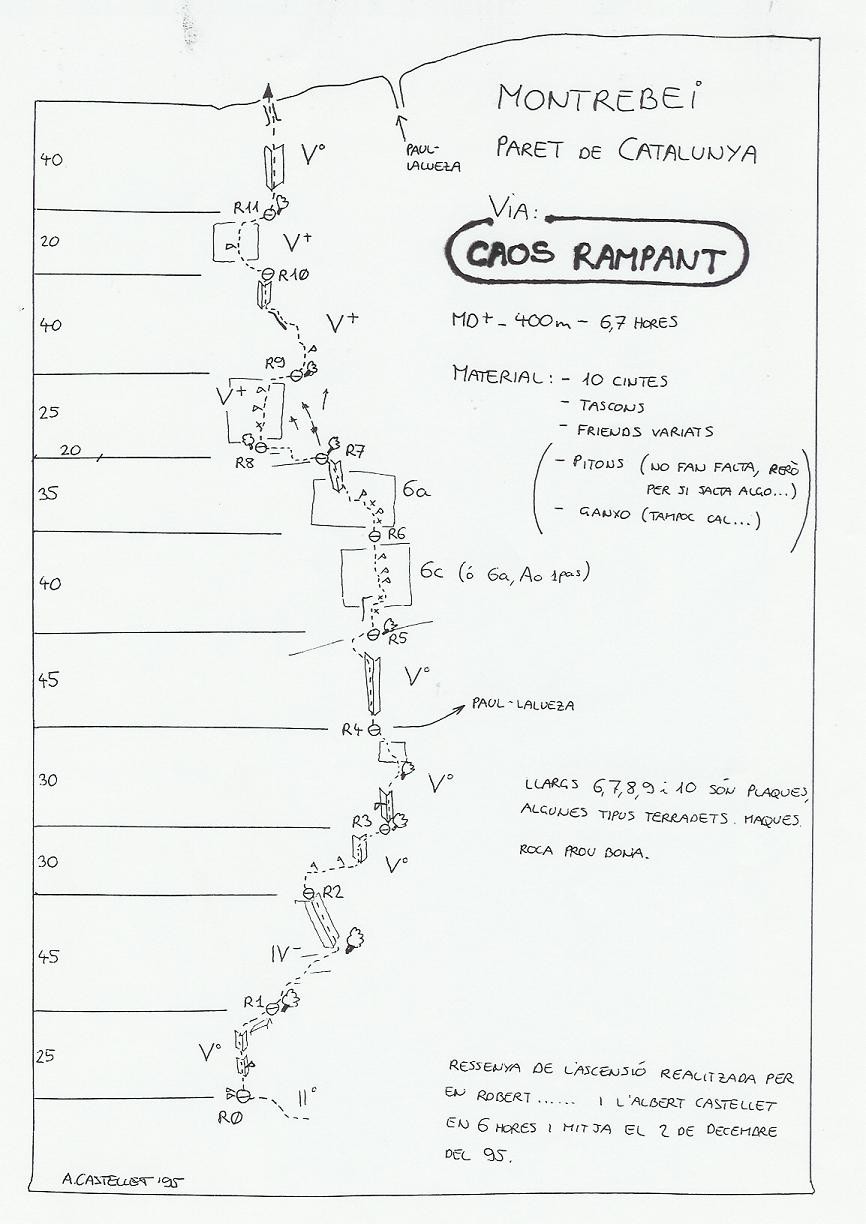 MONTREBEI
PARET DE CATALUNYA
VIA:
CAOS RAMPANT
MD+ - 400m - 6,7 HORES
MATERIAL: - 10 CINTES
- TASCONS
- FRIENDS VARIATS
(- PITONS (NO FAN FALTA, PERÒ
PER SI SALTA ALGO...)
- GANXO (TAMPOC CAL...))
PAUL-
LALUEZA
40
V°
R11
20
V+
R10
40
V+
R9
25
V+
R8
20
R7
35
6a
R6
40
6c (ó 6a, Ao 1pas)
R5
45
V°
R4
PAUL-LALUEZA
30
V°
R3
30
V°
R2
45
IV-
R1
25
V°
R0
II°
LLARGS 6,7,8,9 i 10 SÓN PLAQUES,
ALGUNES TIPUS TERRADETS. MAQUES.
ROCA PROU BONA.
RESSENYA DE L'ASCENSIÓ REALITZADA PER
EN ROBERT ...... I L'ALBERT CASTELLET
EN 6 HORES I MITJA EL 2 DE DECEMBRE
DEL 95.
A.CASTELLET '95